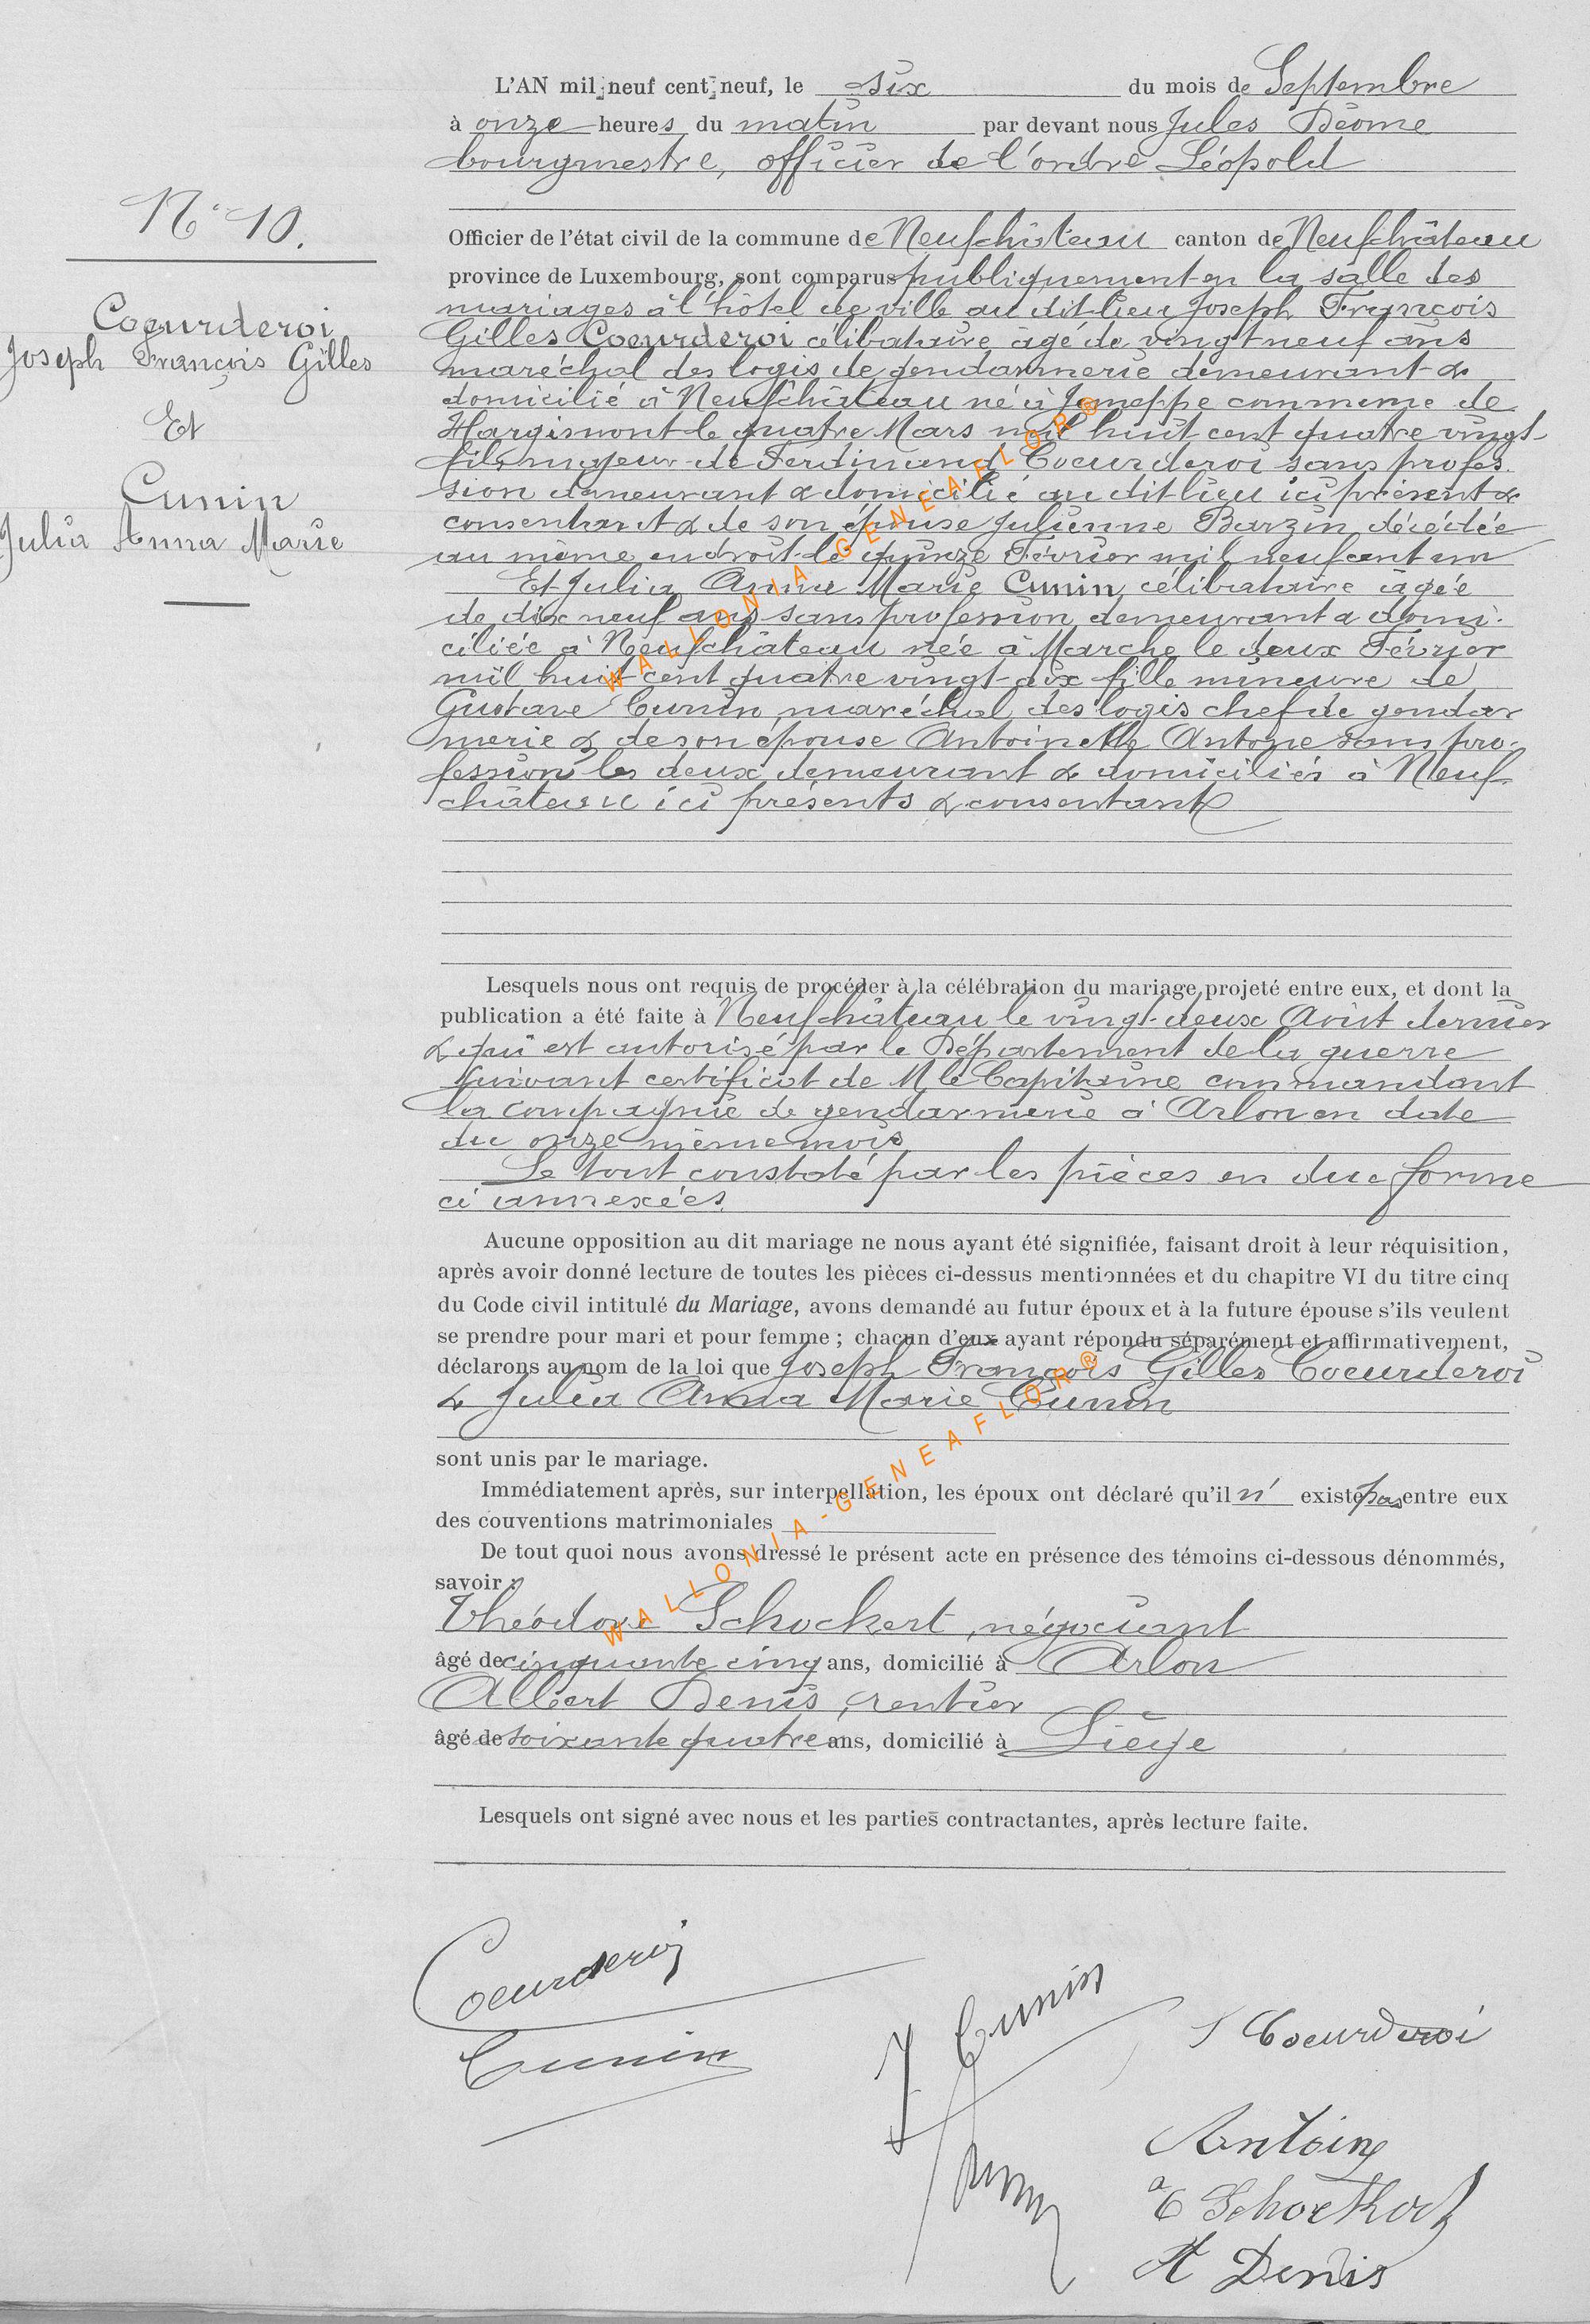 N° 10.
Coeurderoi
Joseph François Gilles
Et
Cunin
Julia Anna Marie
L'AN mil neuf cent neuf, le six du mois de Septembre
à onze heures du matin par devant nous Jules Déome
bourgmestre, officier de l'ordre Léopold
Officier de l'état civil de la commune de Neufchâteau canton de Neufchâteau
province de Luxembourg, sont comparus publiquement en la salle des
mariages à l'hôtel de ville au dit lieu Joseph François
Gilles Coeurderoi célibataire âgé de vingt neuf ans
maréchal des logis de gendarmerie demeurant &
domicilié à Neufchâteau né à Jemeppe commune de
Hargimont le quatre Mars mil huit cent quatre vingt
fils majeur de Ferdinand Coeurderoi sans profes
sion demeurant & domicilié au dit lieu ici présent &
consentant & de son épouse Julienne Barzin décédée
au même endroit le quinze Février mil neuf cent un
Et Julia Anna Marie Cunin célibataire âgée
de dix neuf ans sans profession demeurant & domi-
ciliée à Neufchâteau née à Marche le deux Février
mil huit cent quatre vingt-dix fille mineure de
Gustave Cunin maréchal des logis chef de gendar
merie & de son épouse Antoinette Antoine sans pro-
fession les deux demeurant & domiciliés à Neuf
château ici présents & consentants
Lesquels nous ont requis de procéder à la célébration du mariage projeté entre eux, et dont la
publication a été faite à Neufchâteau le vingt-deux Août dernier
& qui est autorisé par le Département de la guerre
suivant certificat de M le Capitaine commandant
la compagnie de gendarmerie à Arlon en date
du onze même mois
Le tout constaté par les pièces en due forme
ci annexées.
Aucune opposition au dit mariage ne nous ayant été signifiée, faisant droit à leur réquisition,
après avoir donné lecture de toutes les pièces ci-dessus mentionnées et du chapitre VI du titre cinq
du Code civil intitulé du Mariage, avons demandé au futur époux et à la future épouse s'ils veulent
se prendre pour mari et pour femme ; chacun d'eux ayant répondu séparément et affirmativement,
déclarons au nom de la loi que Joseph François Gilles Coeurderoi
& Julia Anna Marie Cunin
sont unis par le mariage.
Immédiatement après, sur interpellation, les époux ont déclaré qu'il n' existe pas entre eux
des conventions matrimoniales
De tout quoi nous avons dressé le présent acte en présence des témoins ci-dessous dénommés,
savoir :
Théodore Schockert, négociant
âgé de cinquante cinq ans, domicilié à Arlon
Albert Denis, rentier
âgé de soixante quatre ans, domicilié à Liège
Lesquels ont signé avec nous et les parties contractantes, après lecture faite.
Coeurderoi
J Cunin
Coeurderoi
Cunin
Antoine
Schockert
A Denis
WALLONIA-GENEAFLOR®
WALLONIA-GENEAFLOR®